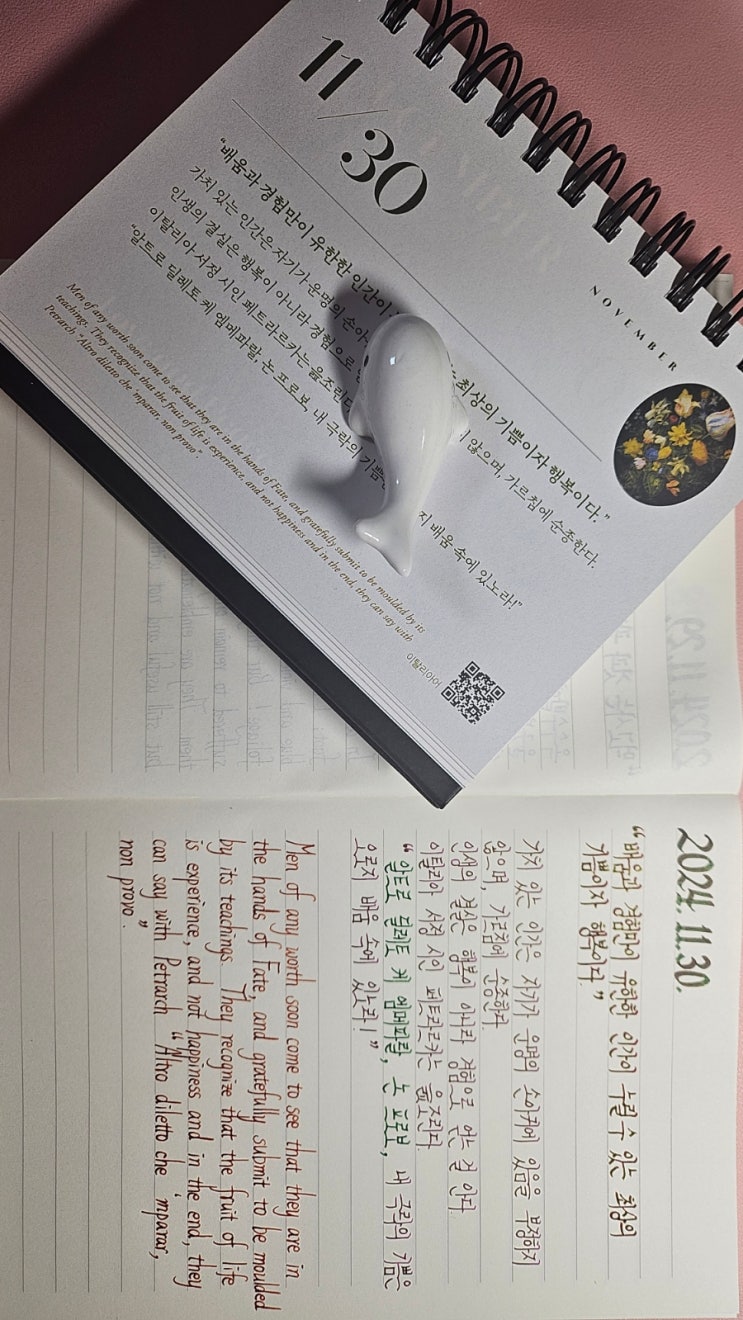 11/30
NOVEMBER
"배움과 경험만이 유한한 인간이 최상의 기쁨이자 행복이다."
가치 있는 인간은 자기가 운명의 손아 않으며, 가르침에 순종한다.
인생의 결실은 행복이 아니라 경험으로
이탈리아 서정 시인 페트라르카는 읊조린다
"알트로 딜레토 케 엠메파랄, 논 프로보, 내 극락의 기쁨 지 배움 속에 있노라!"
Men of any worth soon come to see that they are in the hands of Fate, and gratefully submit to be moulded by its
teachings. They recognize that the fruit of life is experience, and not happiness and in the end, they can say with
Petrarch "Altro diletto che 'mparar, non provo".
이탈리아어
2024. 11. 30.
"배움과 경험만이 유한한 인간이 누릴 수 있는 최상의
기쁨이자 행복이다."
가치 있는 인간은 자기가 운명의 손아귀에 있음을 부정하지
않으며, 가르침에 순종한다.
인생의 결실은 행복이 아니라 경험으로 얻는 걸 안다.
이탈리아 서정 시인 페트라르카는 읊조린다.
"알트로 딜레토 케 엠메파랄, 논 프로보, 내 극락의 기쁨은
오로지 배움 속에 있노라!"
Men of any worth soon come to see that they are in
the hands of Fate, and gratefully submit to be moulded
by its teachings. They recognize that the fruit of life
is experience, and not happiness and in the end, they
can say with Petrarch "Altro diletto che 'mparar,
non provo."